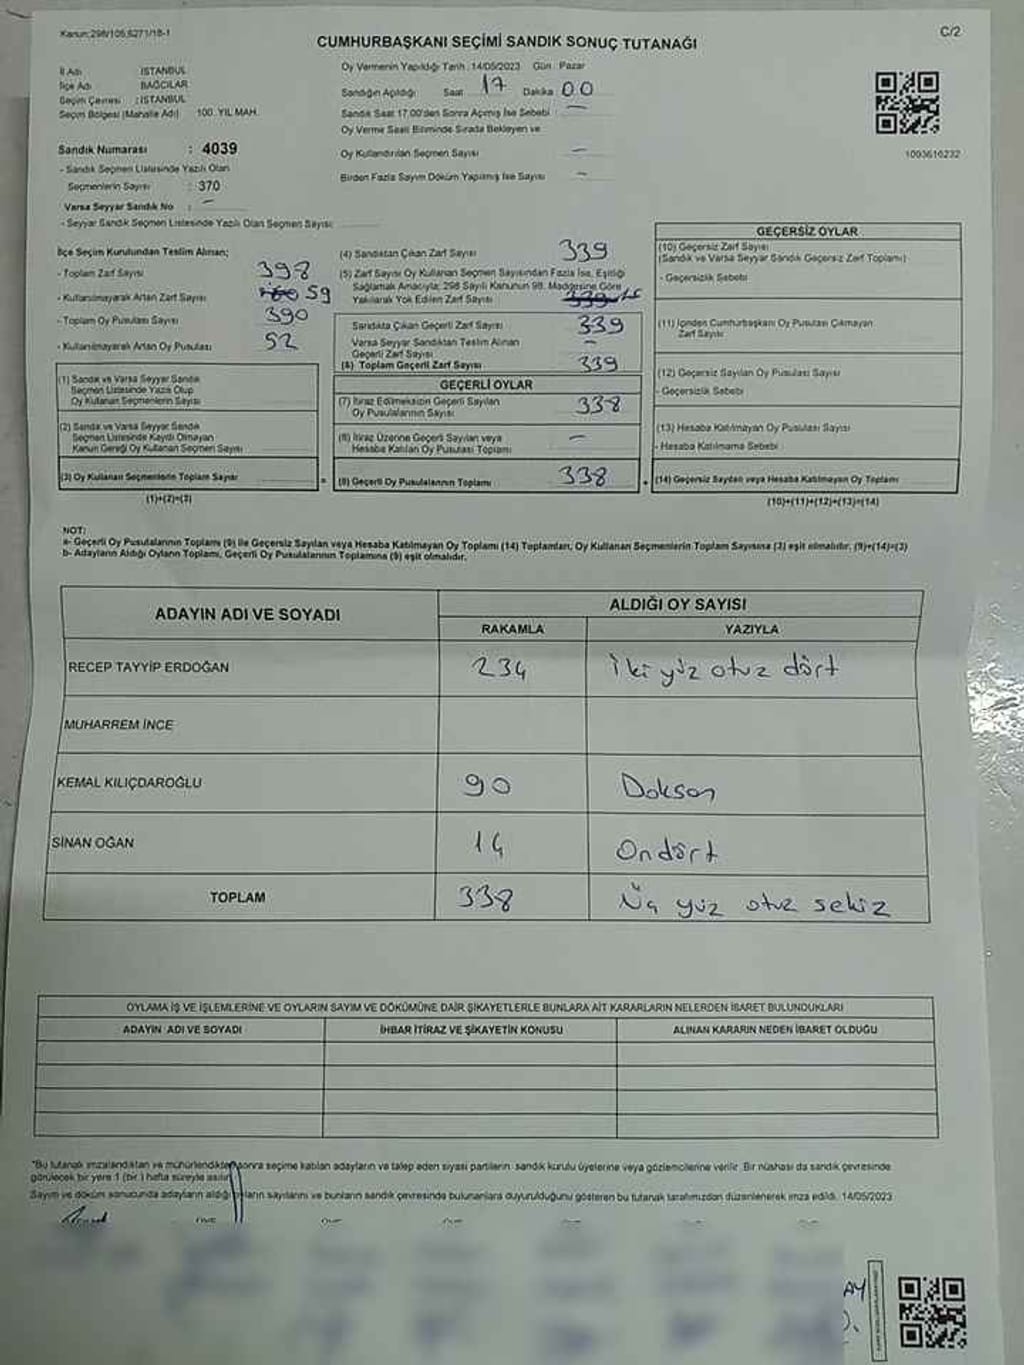 Kanun:298/105,6271/18-1
C/2
CUMHURBAŞKANI SEÇİMİ SANDIK SONUÇ TUTANAĞI
İl Adı : İSTANBUL
İlçe Adı : BAĞCILAR
Seçim Çevresi : İSTANBUL
Seçim Bölgesi (Mahalle Adı) : 100. YIL MAH.
Sandık Numarası : 4039
- Sandık Seçmen Listesinde Yazılı Olan
Seçmenlerin Sayısı : 370
Varsa Seyyar Sandık No : –
- Seyyar Sandık Seçmen Listesinde Yazılı Olan Seçmen Sayısı:
Oy Vermenin Yapıldığı Tarih :14/05/2023 Gün : Pazar
Sandığın Açıldığı Saat 17 Dakika 00
Sandık Saat 17.00'den Sonra Açılmış İse Sebebi –
Oy Verme Saati Bitiminde Sırada Bekleyen ve
Oy Kullandırılan Seçmen Sayısı –
Birden Fazla Sayım Döküm Yapılmış İse Sayısı –
1003616232
İlçe Seçim Kurulundan Teslim Alınan;
- Toplam Zarf Sayısı 398
- Kullanılmayarak Artan Zarf Sayısı 59
- Toplam Oy Pusulası Sayısı 390
- Kullanılmayarak Artan Oy Pusulası 52
(1) Sandık ve Varsa Seyyar Sandık
Seçmen Listesinde Yazılı Olup
Oy Kullanan Seçmenlerin Sayısı
(2) Sandık ve Varsa Seyyar Sandık
Seçmen Listesinde Kayıtlı Olmayan
Kanun Gereği Oy Kullanan Seçmen Sayısı
(3) Oy Kullanan Seçmenlerin Toplam Sayısı
(1)+(2)=(3)
(4) Sandıktan Çıkan Zarf Sayısı 339
(5) Zarf Sayısı Oy Kullanan Seçmen Sayısından Fazla İse, Eşitliği
Sağlamak Amacıyla; 298 Sayılı Kanunun 98. Maddesine Göre
Yakılarak Yok Edilen Zarf Sayısı
Sandıkta Çıkan Geçerli Zarf Sayısı 339
Varsa Seyyar Sandıktan Teslim Alınan
Geçerli Zarf Sayısı –
(6) Toplam Geçerli Zarf Sayısı 339
GEÇERLİ OYLAR
(7) İtiraz Edilmeksizin Geçerli Sayılan
Oy Pusulalarının Sayısı 338
(8) İtiraz Üzerine Geçerli Sayılan veya
Hesaba Katılan Oy Pusulası Toplamı –
= (9) Geçerli Oy Pusulalarının Toplamı 338
GEÇERSİZ OYLAR
(10) Geçersiz Zarf Sayısı
(Sandık ve Varsa Seyyar Sandık Geçersiz Zarf Toplamı)
- Geçersizlik Sebebi
(11) İçinden Cumhurbaşkanı Oy Pusulası Çıkmayan
Zarf Sayısı
(12) Geçersiz Sayılan Oy Pusulası Sayısı
- Geçersizlik Sebebi
(13) Hesaba Katılmayan Oy Pusulası Sayısı
- Hesaba Katılmama Sebebi
+ (14) Geçersiz Sayılan veya Hesaba Katılmayan Oy Toplamı
(10)+(11)+(12)+(13)=(14)
NOT:
a- Geçerli Oy Pusulalarının Toplamı (9) ile Geçersiz Sayılan veya Hesaba Katılmayan Oy Toplamı (14) Toplamları, Oy Kullanan Seçmenlerin Toplam Sayısına (3) eşit olmalıdır. (9)+(14)=(3)
b- Adayların Aldığı Oyların Toplamı, Geçerli Oy Pusulalarının Toplamına (9) eşit olmalıdır.
ADAYIN ADI VE SOYADI
ALDIĞI OY SAYISI
RAKAMLA YAZIYLA
RECEP TAYYİP ERDOĞAN 234 iki yüz otuz dört
MUHARREM İNCE
KEMAL KILIÇDAROĞLU 90 Doksan
SİNAN OĞAN 14 Ondört
TOPLAM 338 Üç yüz otuz sekiz
OYLAMA İŞ VE İŞLEMLERİNE VE OYLARIN SAYIM VE DÖKÜMÜNE DAİR ŞİKAYETLERLE BUNLARA AİT KARARLARIN NELERDEN İBARET BULUNDUKLARI
ADAYIN ADI VE SOYADI İHBAR İTİRAZ VE ŞİKAYETİN KONUSU ALINAN KARARIN NEDEN İBARET OLDUĞU
*Bu tutanak imzalandıktan ve mühürlendikten sonra seçime katılan adayların ve talep eden siyasi partilerin sandık kurulu üyelerine veya gözlemcilerine verilir. Bir nüshası da sandık çevresinde
görülecek bir yere 1 (bir) hafta süreyle asılır.
Sayım ve döküm sonucunda adayların aldığı oyların sayılarını ve bunların sandık çevresinde bulunanlara duyurulduğunu gösteren bu tutanak tarafımızdan düzenlenerek imza edildi. 14/05/2023